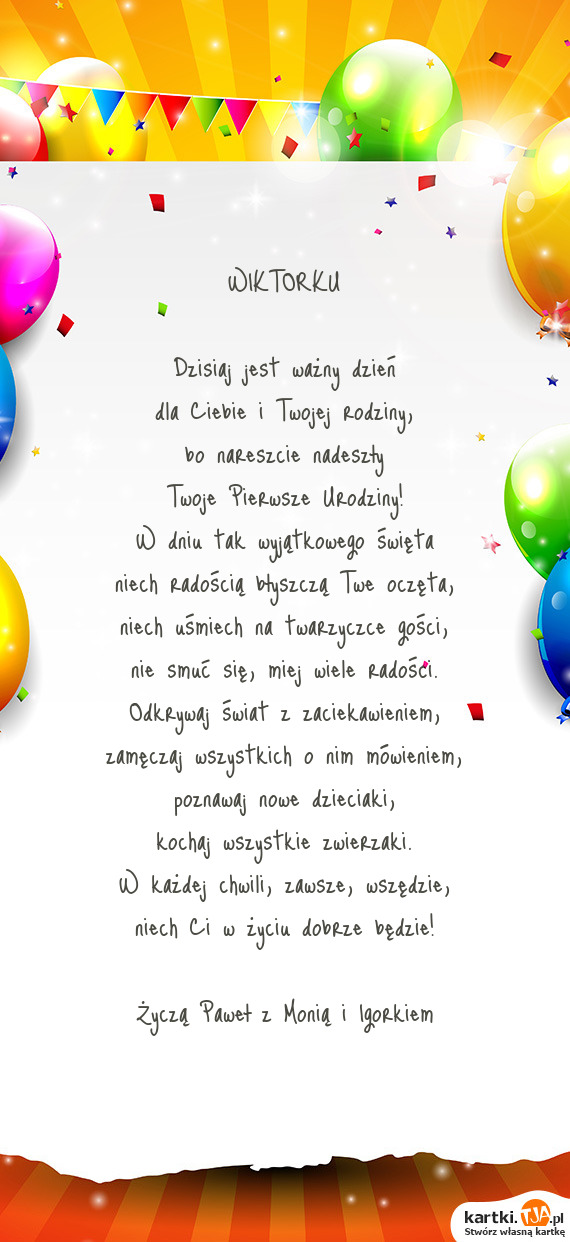 WIKTORKU
Dzisiaj jest ważny dzień
dla Ciebie i Twojej rodziny,
bo nareszcie nadeszły
Twoje Pierwsze Urodziny!
W dniu tak wyjątkowego święta
niech radością błyszczą Twe oczęta,
niech uśmiech na twarzyczce gości,
nie smuć się, miej wiele radości.
Odkrywaj świat z zaciekawieniem,
zamęczaj wszystkich o nim mówieniem,
poznawaj nowe dzieciaki,
kochaj wszystkie zwierzaki.
W każdej chwili, zawsze, wszędzie,
niech Ci w życiu dobrze będzie!
Życzą Paweł z Monią i Igorkiem
kartki.TJA.pl
Stwórz własną kartkę